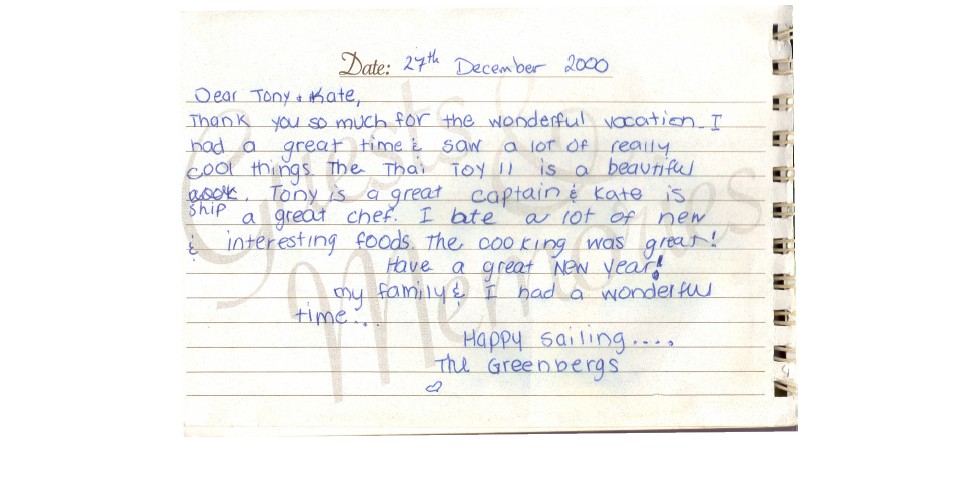 Date: 27th December 2000
Dear Tony & Kate,
Thank you so much for the wonderful vacation. I
had a great time & saw a lot of really
cool things. The Thai Toy II is a beautiful
Tony is a great captain & Kate is
ship a great chef. I ate a lot of new
& interesting foods. The cooking was great!
Have a great New Year!
My family & I had a wonderful
time...
Happy sailing....
The Greenbergs
Guests & Memories